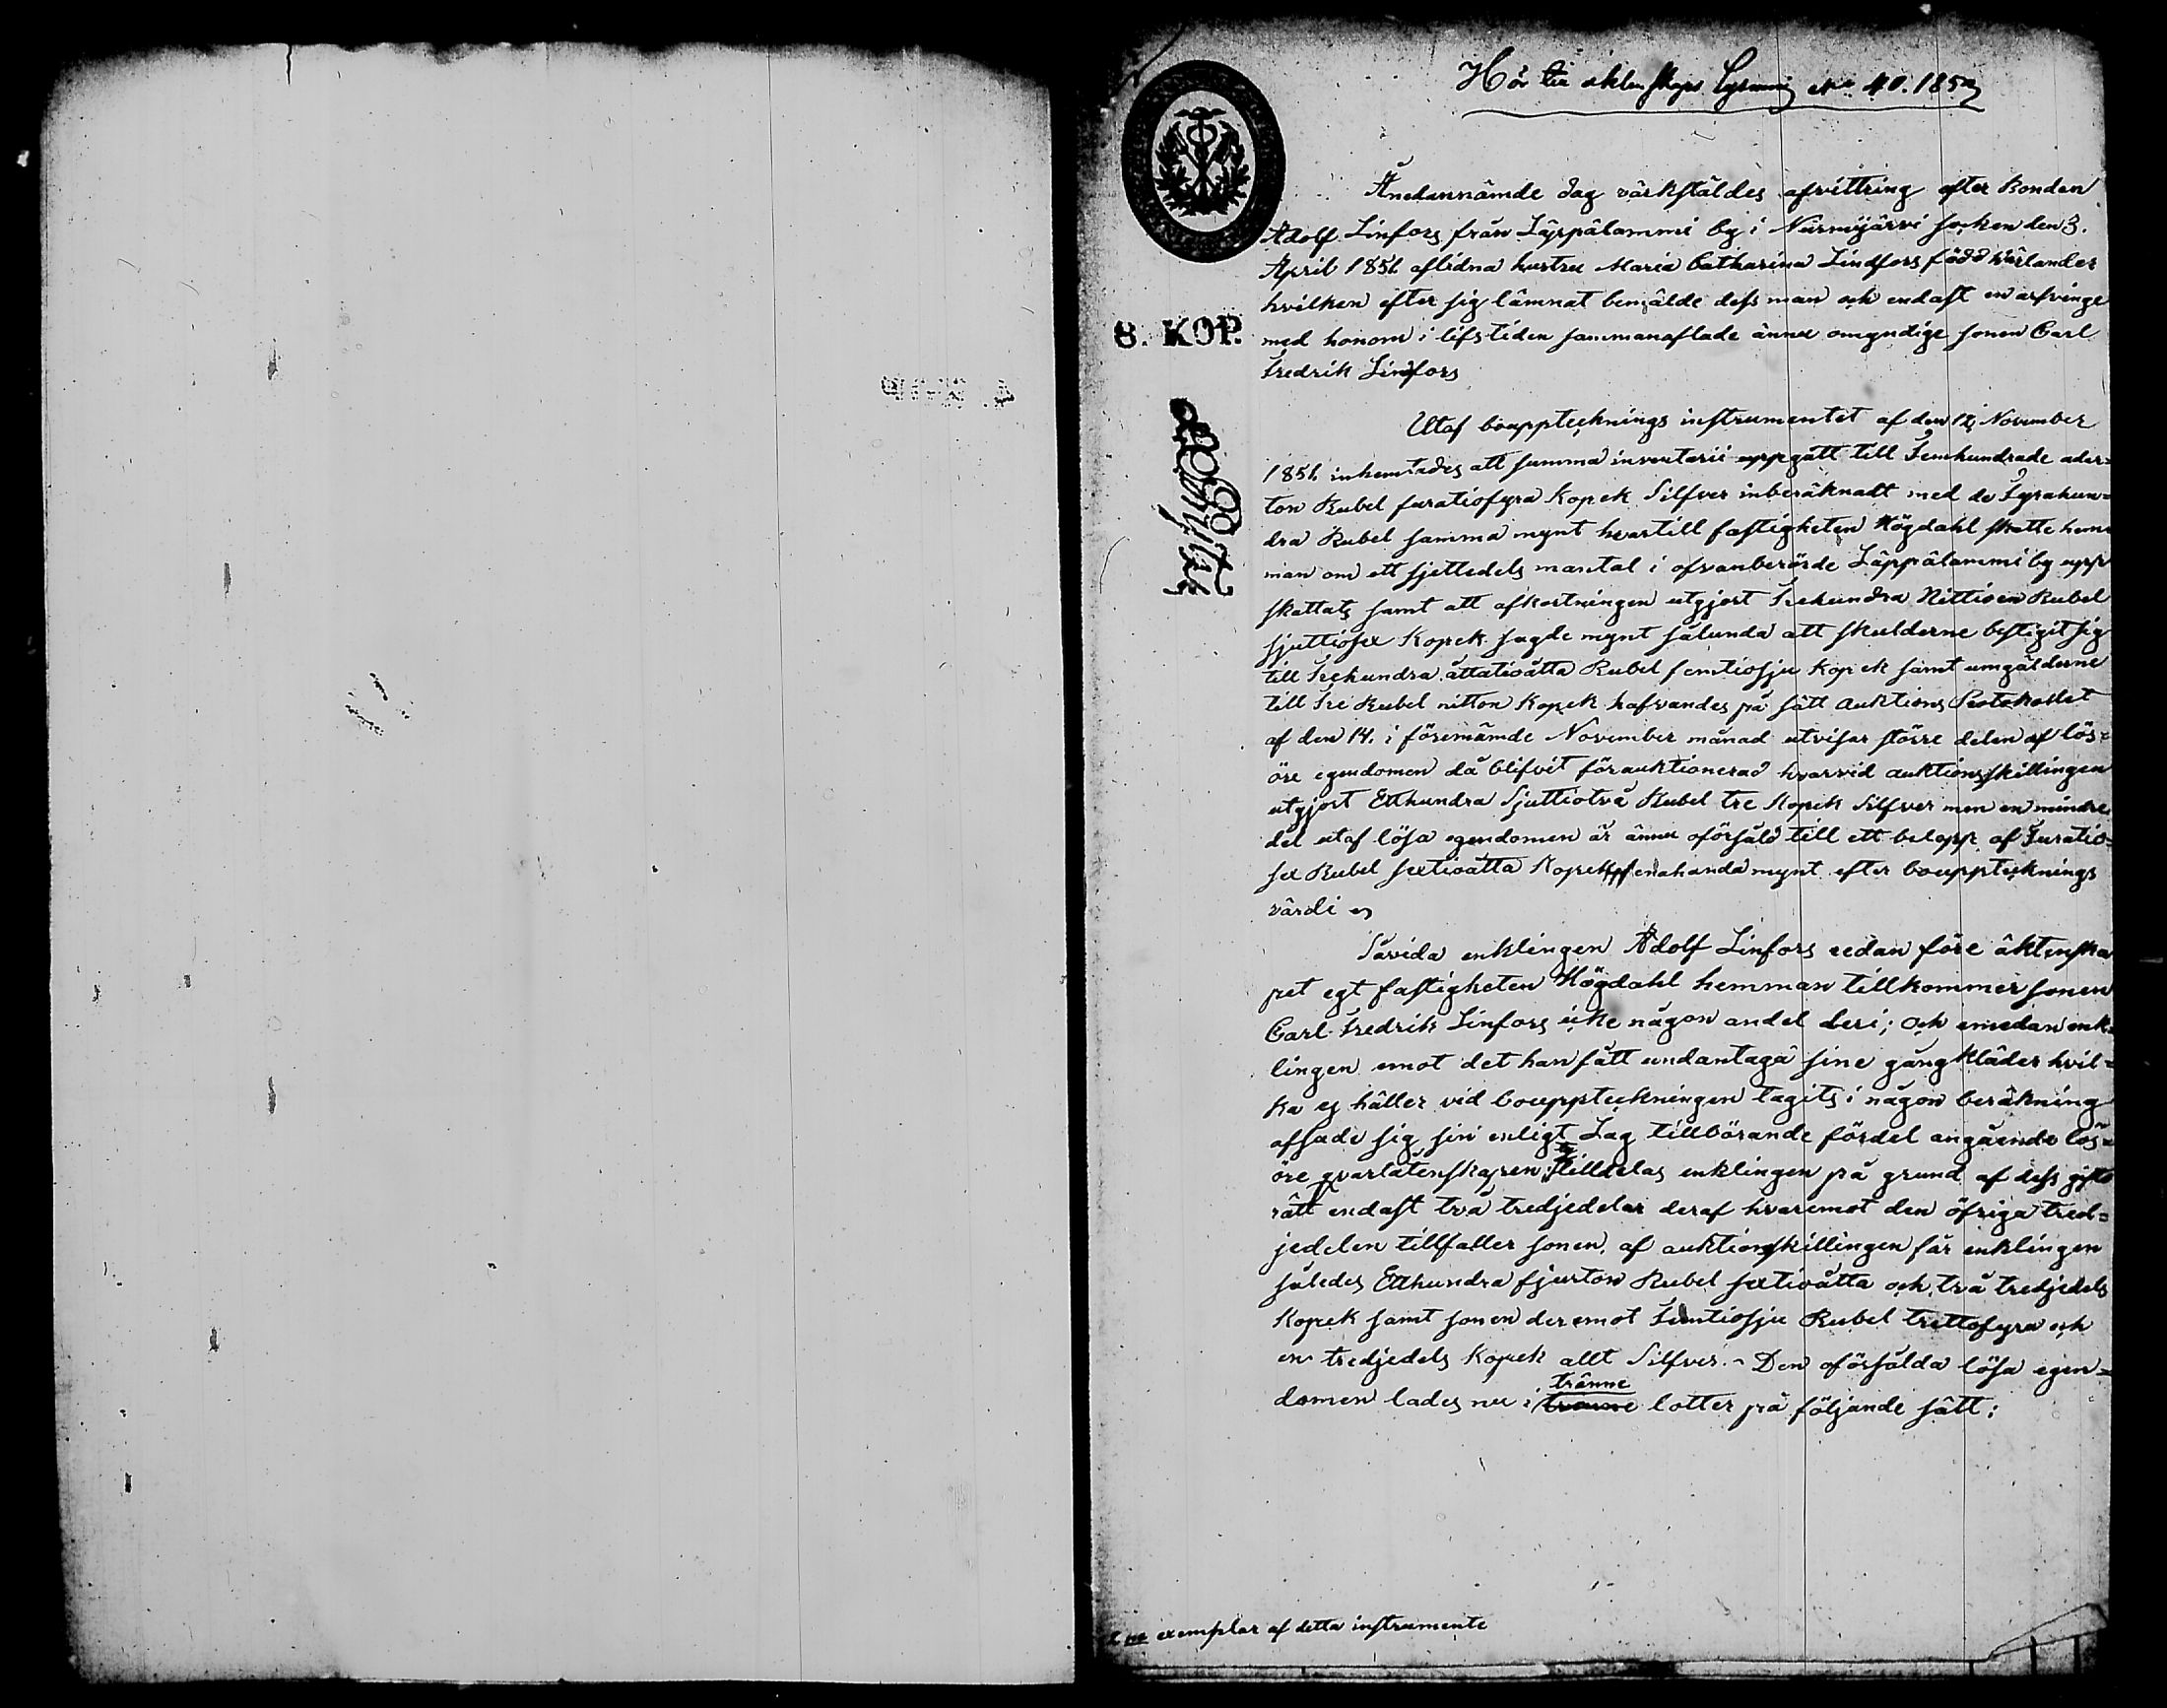 Hör till äktenskaps Lysning No 40. 1852
Ånedannämde dag värkstäldes afvittring efter Bonden
Adolf Linfors från Läppälammi by i Nurmijärvi socken den 3.
April 1851 aflidna hustru Maria Catharina Lindfors född
hvilken efter sig lämnat bemälde dess man och endast en arfvinge
8. KOP.
med honom i lifstiden sammanaflade ännu omyndige sonen Carl
Fredrik Lindfors
Utaf bouppteckningsinstrumentet af den 12 November
1851 inhemtades att summa inventarii uppgått till Femhundrade ader=
ton Rubel furatiofyra Kopek Silfver inberäknadt med de Fyrahun=
dra Rubel samma mynt hvartill fastigheten Högdahl skatte hem=
man om ett sjettedels mantal i ofvanberörde Läppälammi by upp
skattats samt att afkortningen utgjort Trehundra Nittioen Rubel
sjuttiosex Kopek sagde mynt sålunda att skulderne bestigit sig
till Trehundra åttatioåtta Rubel femtiosju Kopek samt umgälderne
till Tre Rubel nitton Kopek hafvandes på sätt Auktions Protokollet
af den 14. i förenämde November månad utvisar större delen af lös=
öre egendomen då blifvit förauktionerad hvarvid auktionsskillingen
utgjort Etthundra Sjuttiotvå Rubel tre Kopek Silfver men en mindre
del utaf lösa egendomen är ännu oförsåld till ett belopp af Furatio=
sex Rubel sextioåtta Kopek enahanda mynt efter boupptecknings
värdi
Såvida enklingen Adolf Linfors redan före äktenska
pet egt fastigheten Högdahl hemman tillkommer sonen
Carl Fredrik Linfors icke någon andel deri; Och emedan enk=
lingen emot det han fått undantaga sine gångkläder hvil=
ka ej häller vid bouppteckningen tagits i någon beräkning
afsade sig sin enligt Lag tillbörande fördel angående lös=
öre qvarlåtenskapen; tilldelas enklingen på grund af dess gifto
rätt endast två tredjedelar deraf hvaremot den öfriga tred=
jedelen tillfaller sonen, af auktionsskillingen får enklingen
således Etthundra fjurton Rubel sextioåtta och två tredjedels
Kopek samt sonen deremot Femtiosju Rubel trettofyra och
en tredjedels Kopek allt Silfver. - Den oförsålda lösa egen=
tränne
domen lades nu i lotter på följande sätt:
exemplar af detta instrumente